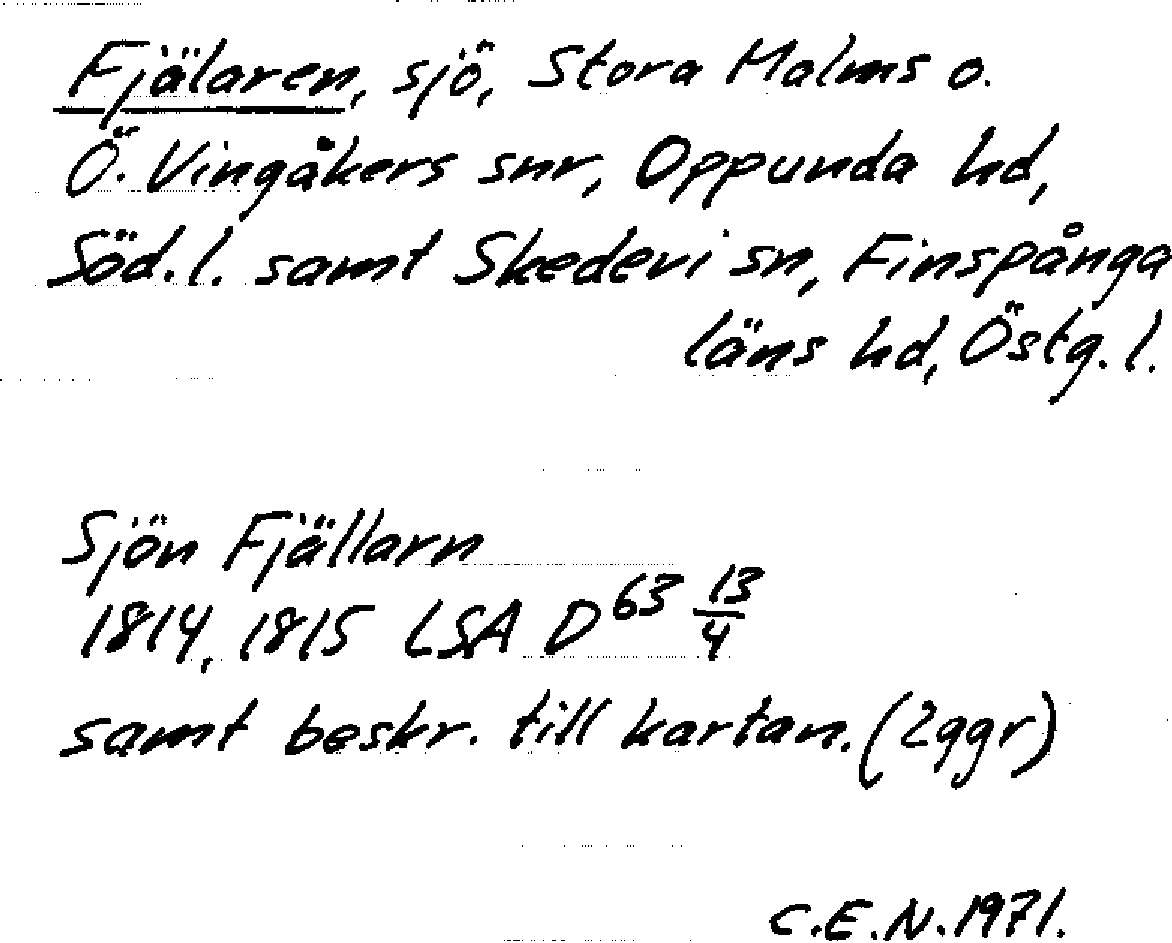 Fjälaren, sjö, Stora Malms o.
Ö. Vingåkers snr, Oppunda hd,
Söd. l. samt Skedevi sn, Finspånga
läns hd, Östg. l.
Sjön Fjällarn
1814, 1815 LSA D 63 13/4
samt beskr. till kartan. (2ggr)
C.E.N. 1971.